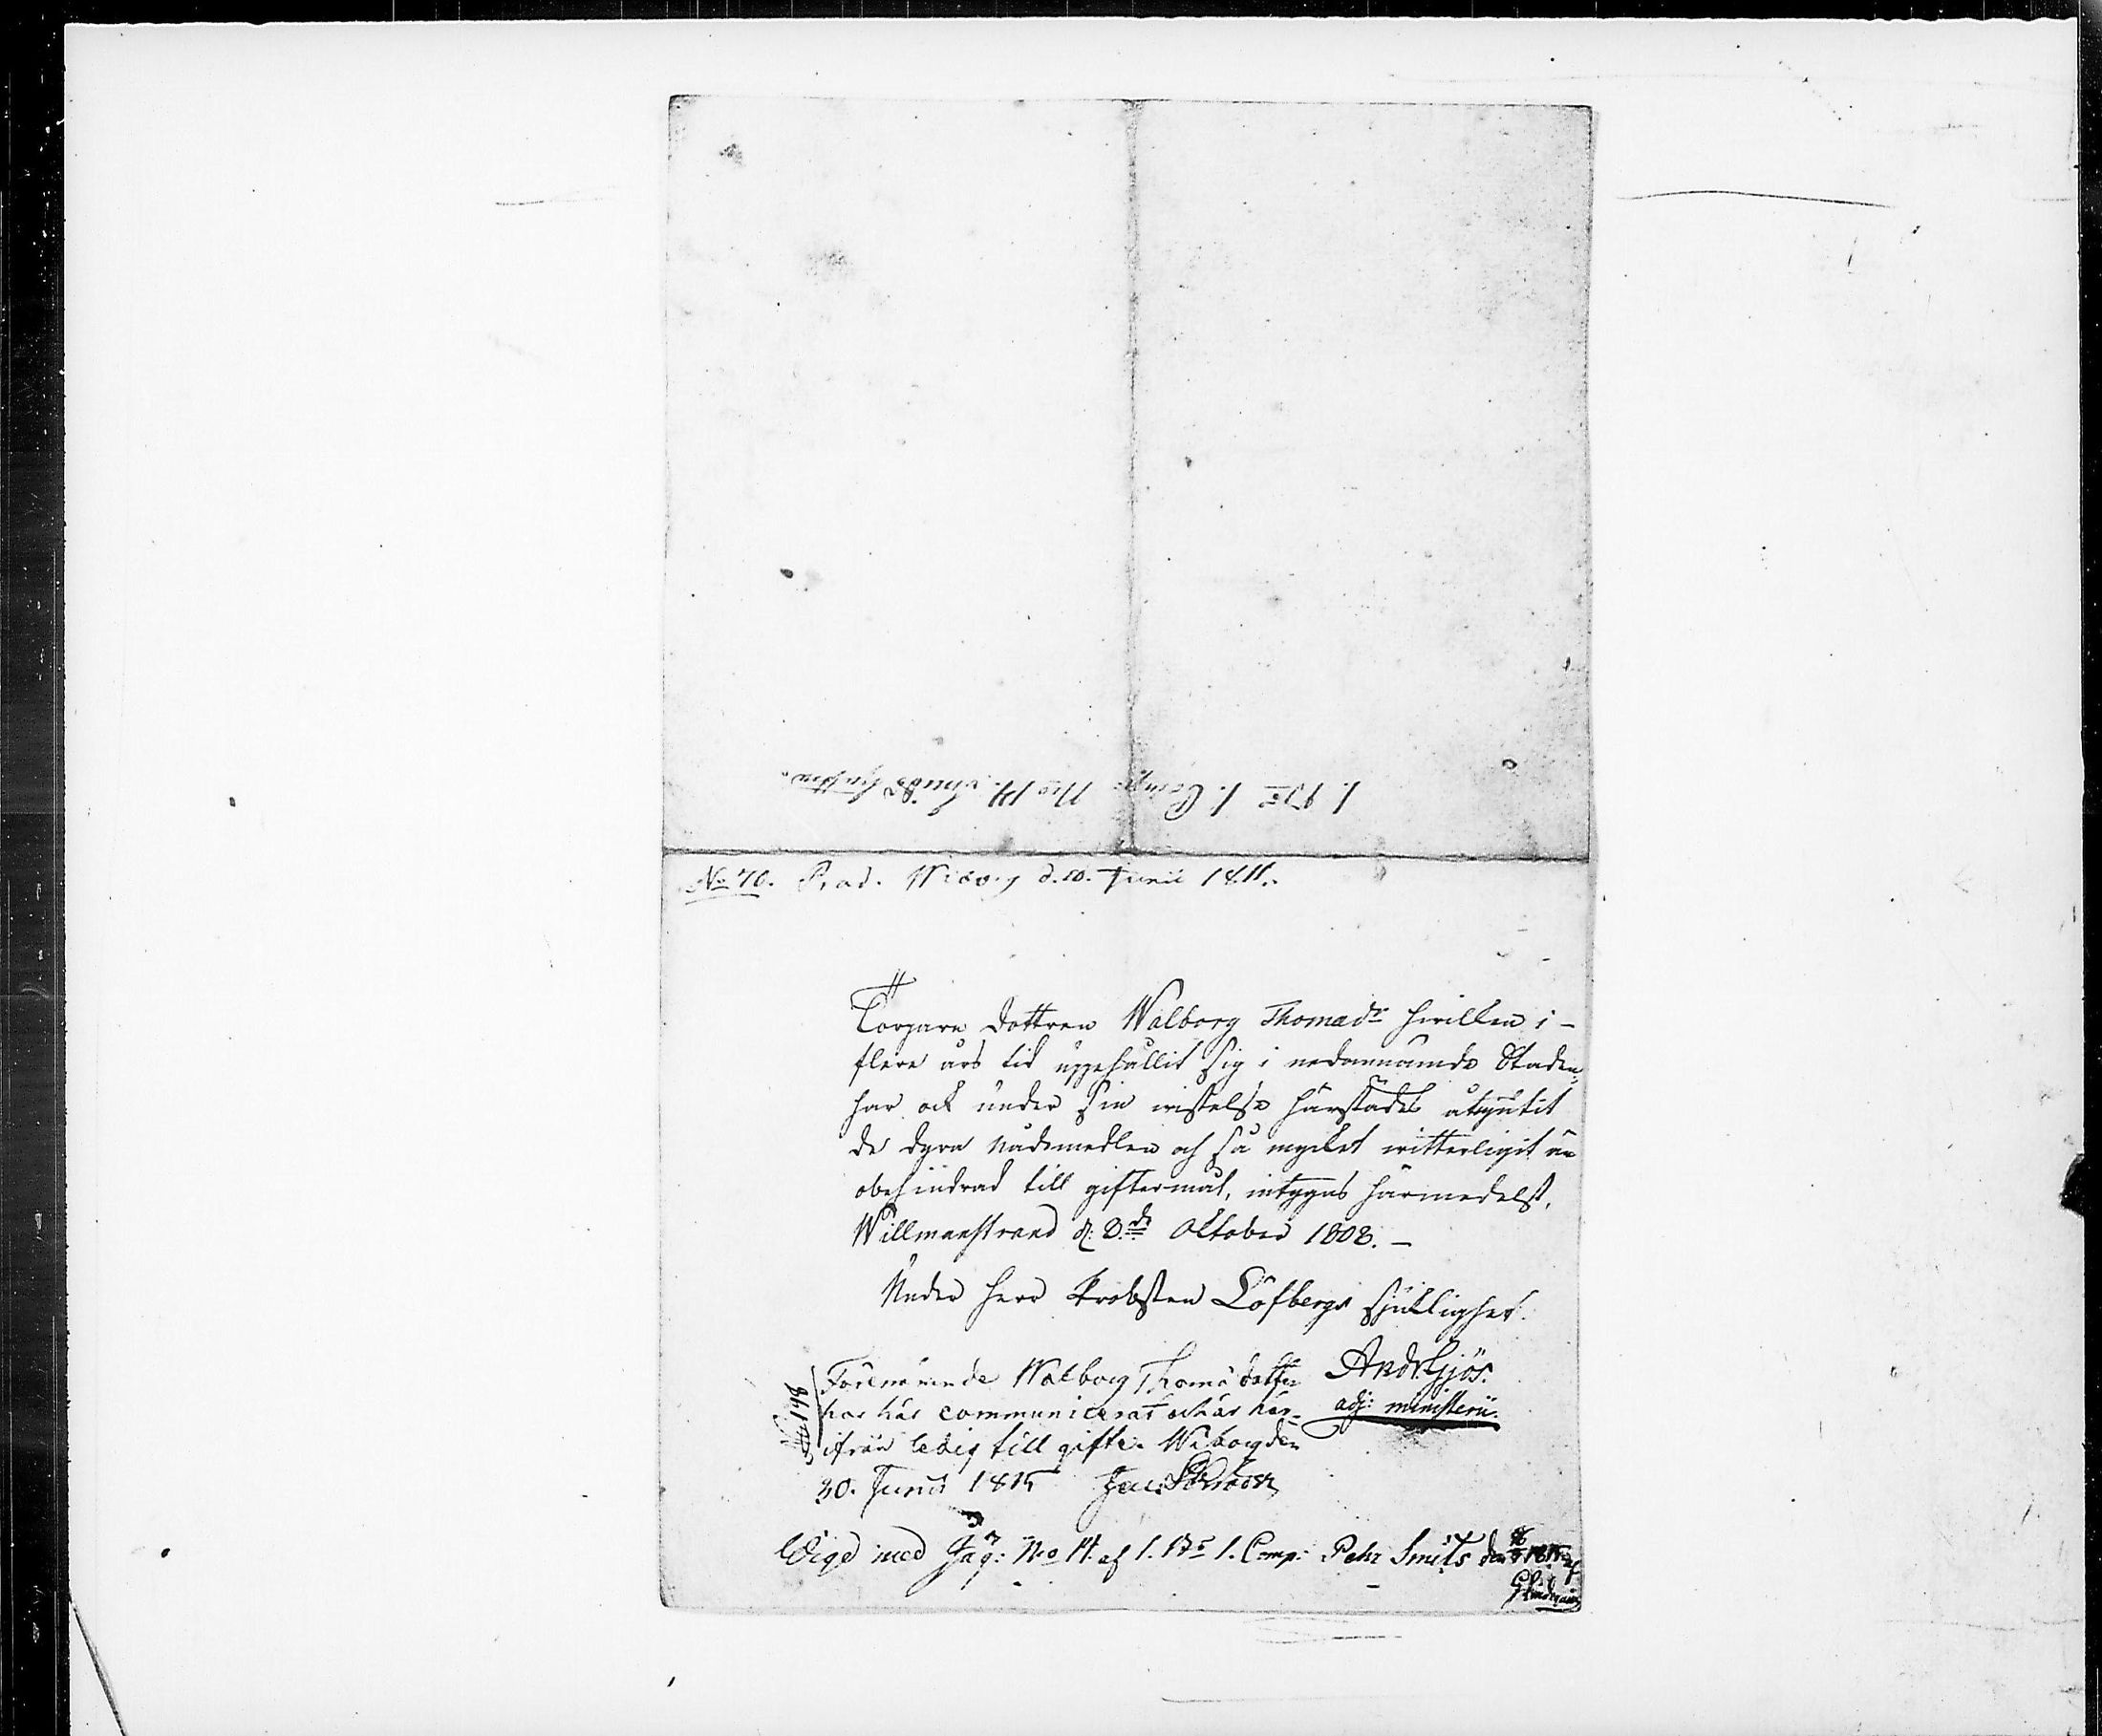 1. Bt 1. Comp: No 14. Smits hustru.
No 70. Prod. Wiborg d. 10. Junii 1811.
Torpare dottren Walborg Thomædr hwilken i
flere års tid uppehållit sig i nedannämde Staden,
har ock under sin wistelse härstädes åtnjutit
de dyra nådemedlen och så mycket witterligit är
obehindrad till giftermål, intygas härmedelst.
Willmanstrand d: 3.de Oktober 1808.
Under Herr Probsten Löfbergs sjuklighet.
Andr. Gjös.
adj: ministerii.
No 148
Förenämnde Walborg Thomædotter
har här communicerat och är här-
ifrån ledig till gifte. Wiborg den
30. Junii 1815 Jac:
Wigd med Jäg: No 14. af 1. Bt 1. Comp: Pehr Smits den 1815 af